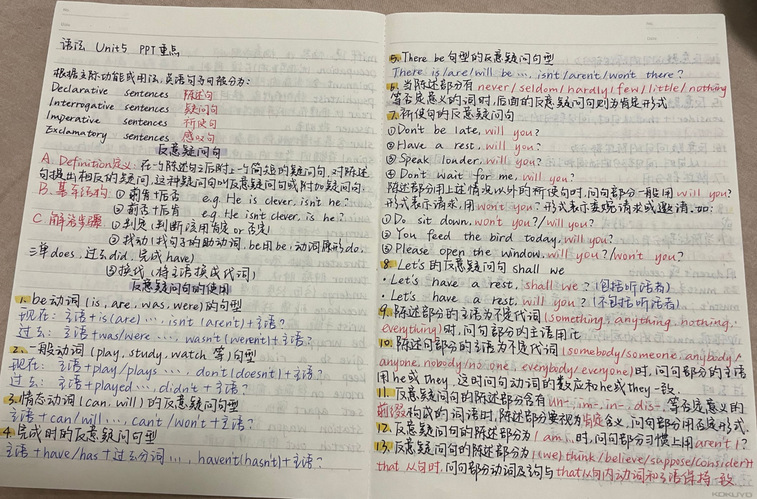 语法 Unit5 PPT重点
根据交际功能或用法,英语句子可被分为:
Declarative sentences 陈述句
Interrogative sentences 疑问句
Imperative sentences 祈使句
Exclamatory sentences 感叹句
反意疑问句
A. Definition定义: 在一个陈述句之后附上一个简短的疑问句,对陈述
句提出相反的疑问,这种疑问句叫反意疑问句或附加疑问句.
B. 基本结构 ① 前肯+后否 e.g. He is clever, isn't he?
② 前否+后肯 e.g. He isn't clever, is he?
C 解答步骤 ① 判定(判断该用肯定or否定)
② 找动(找句子的助动词, be用be, 动词原形do,
三单does, 过去did, 完成have)
③ 换代(将主语换成代词)
反意疑问句的使用
1. be动词(is, are, was, were)的句型
现在: 主语+is(are)..., isn't (aren't)+主语?
过去: 主语+was/were ..., wasn't(weren't)+主语?
2. 一般动词(play, study, watch 等)句型
现在: 主语+play/plays ..., don't(doesn't)+主语?
过去: 主语+played..., didn't+主语?
3. 情态动词(can, will)的反意疑问句型
主语+can/will..., can't/won't+主语?
4. 完成时的反意疑问句型
主语+have/has+过去分词..., haven't(hasn't)+主语?
5. There be句型的反意疑问句型
There is/are/will be ..., isn't/aren't/won't there?
6. 当陈述部分有never/seldom/hardly/few/little/nothing
等否定意义的词时,后面的反意疑问句则为肯定形式
7. 祈使句的反意疑问句
① Don't be late, will you?
② Have a rest, will you?
③ Speak louder, will you?
④ Don't wait for me, will you?
陈述部分用上述情况以外的祈使句时,问句部分一般用will you?
形式表示请求,用won't you?形式表示委婉请求或邀请.如:
① Do sit down, won't you?/will you?
② You feed the bird today, will you?
③ Please open the window, will you?/won't you?
8. Let's的反意疑问句shall we
· Let's have a rest, shall we?(包括听话者)
· Let's have a rest, will you?(不包括听话者)
9. 陈述部分的主语为不定代词(something, anything, nothing,
everything)时,问句部分的主语用it
10. 陈述句部分的主语为不定代词(somebody/someone, anybody/
anyone, nobody/no one, everybody/everyone)时,问句部分的主语
用he或they,这时问句动词的数应和he或they一致.
11. 反意疑问句的陈述部分含有un-, im-, in-, dis-, 等否定意义的
前缀构成的词语时,陈述部分要视为肯定含义,问句部分用否定形式.
12. 反意疑问句的陈述部分为I am,时,问句部分习惯上用aren't I?
13. 反意疑问句的陈述部分为I(we) think/believe/suppose/consider)+
that 从句时,问句部分动词及动词与that从句内动词和主语保持一致
KOKUYO